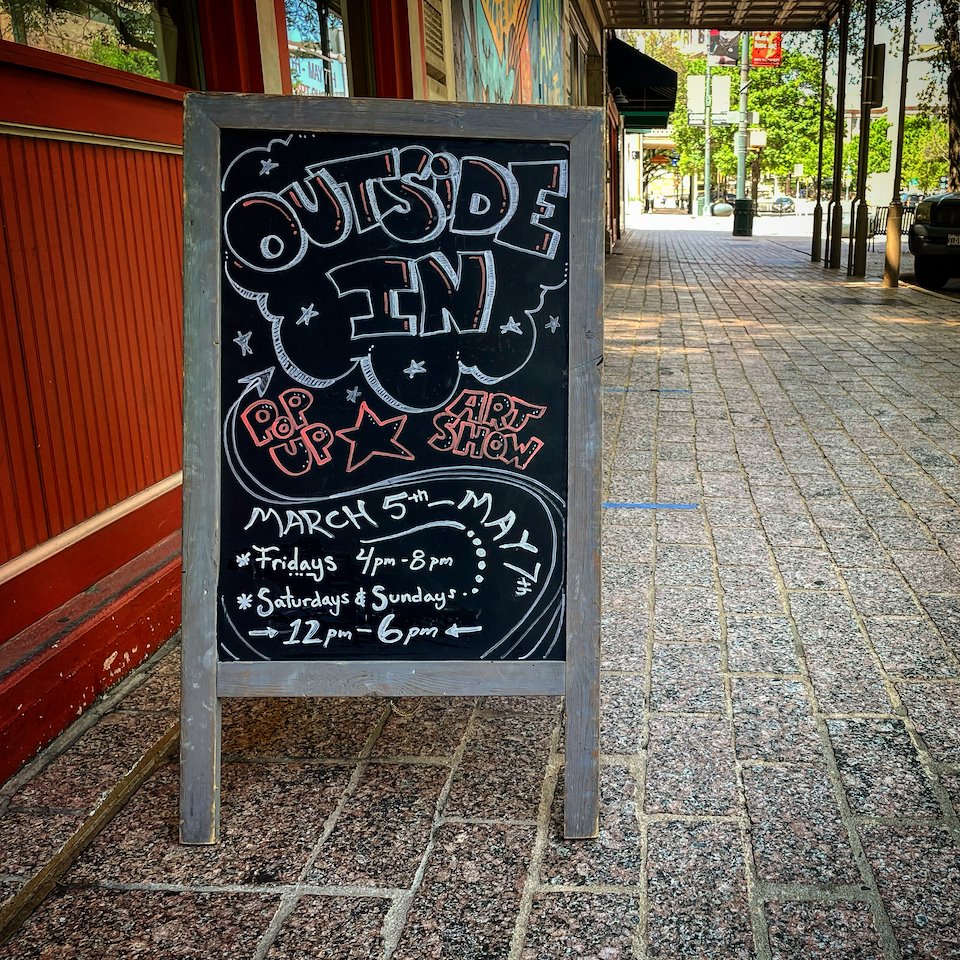 OUTSiDE
IN
POP
UP
ART
SHOW
MARCH 5th - MAY 7th
* Fridays 4pm - 8pm
* Saturdays & Sundays
12pm - 6pm